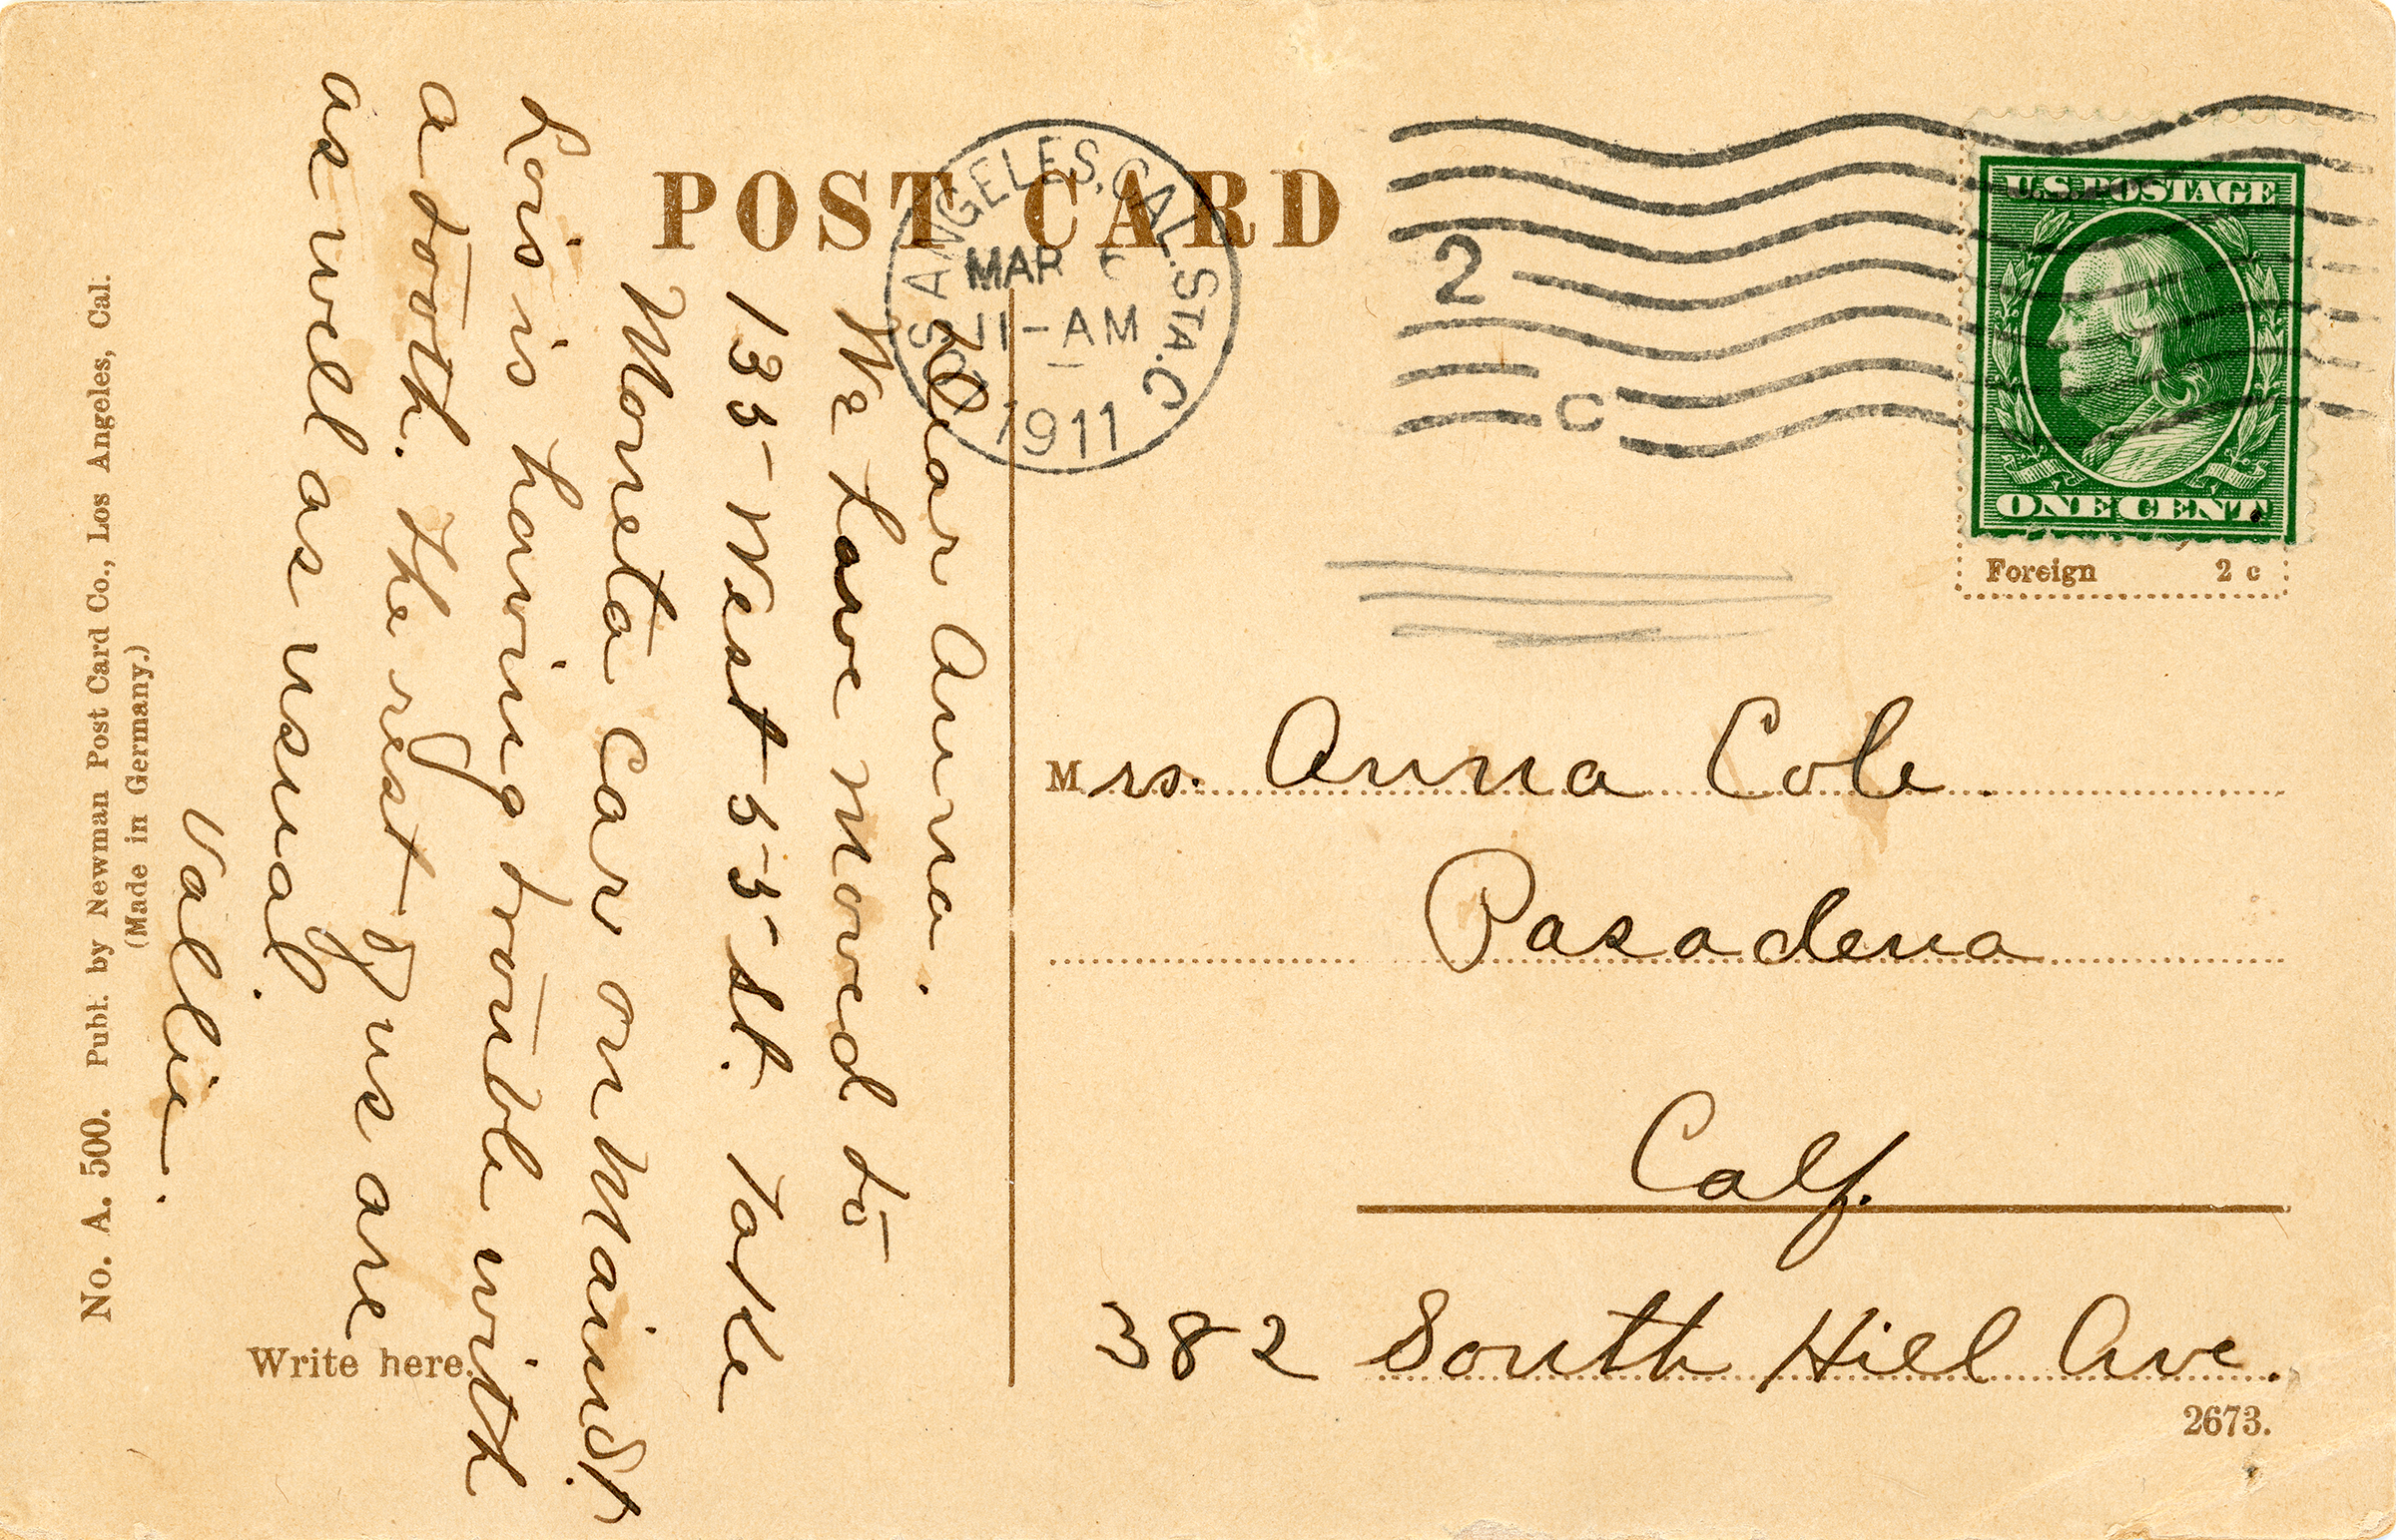 POST CARD
LOS ANGELES, CAL. STA. C
MAR
11-AM
1911
2
C
U.S. POSTAGE
ONE CENT
Foreign 2 c
Dear Anna.
We have moved to
135-West 55 St. Take
Moneta Car on Main St.
Lois is having trouble with
a tooth. The rest of us are
as well as usual
Vallie.
Mrs. Anna Cole.
Pasadena
Calf.
382 South Hill Ave.
2673.
Write here.
No. A. 500. Publ. by Newman Post Card Co., Los Angeles, Cal.
(Made in Germany.)